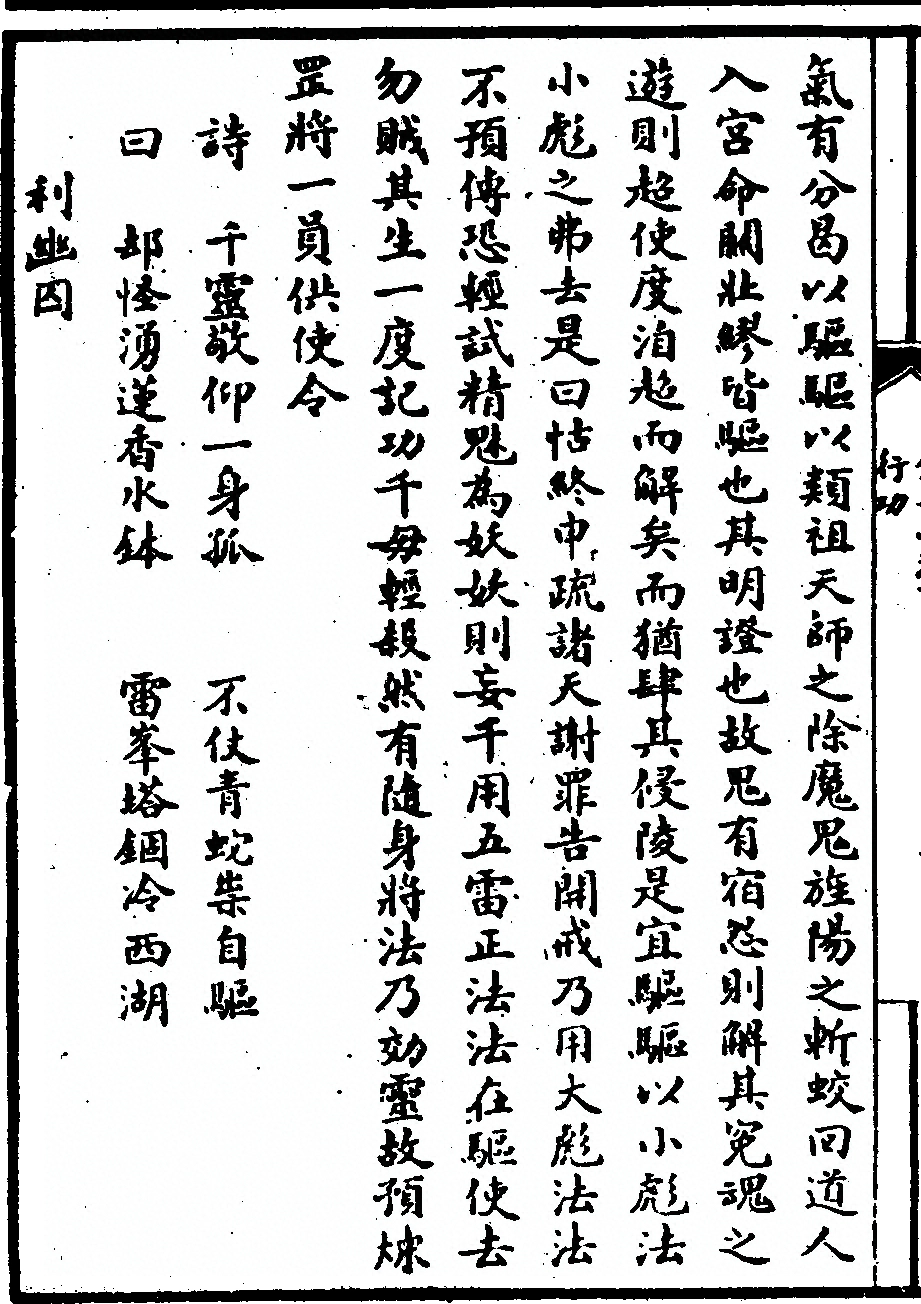 氣有分曷以驅驅以類祖天師之除魔鬼旌陽之斬蛟回道人
入宮命關壯繆皆驅也其明證也故鬼有宿怨則解其冤魂之
遊則超使度洎超而解矣而猶肆其侵陵是宜驅驅以小彪法
小彪之弗去是曰怙終申疏諸天謝罪告開戒乃用大彪法法
不預傳恐輕試精魅為妖妖則妄千用五雷正法法在驅使去
勿賊其生一度記功千毋輕殺然有隨身將法乃効靈故預煉
罡將一員供使令
詩 千靈敬仰一身孤 不仗青蛇祟自驅
曰 却怪湧蓮香水鉢 雷峯塔錮冷西湖
利幽囚
行功